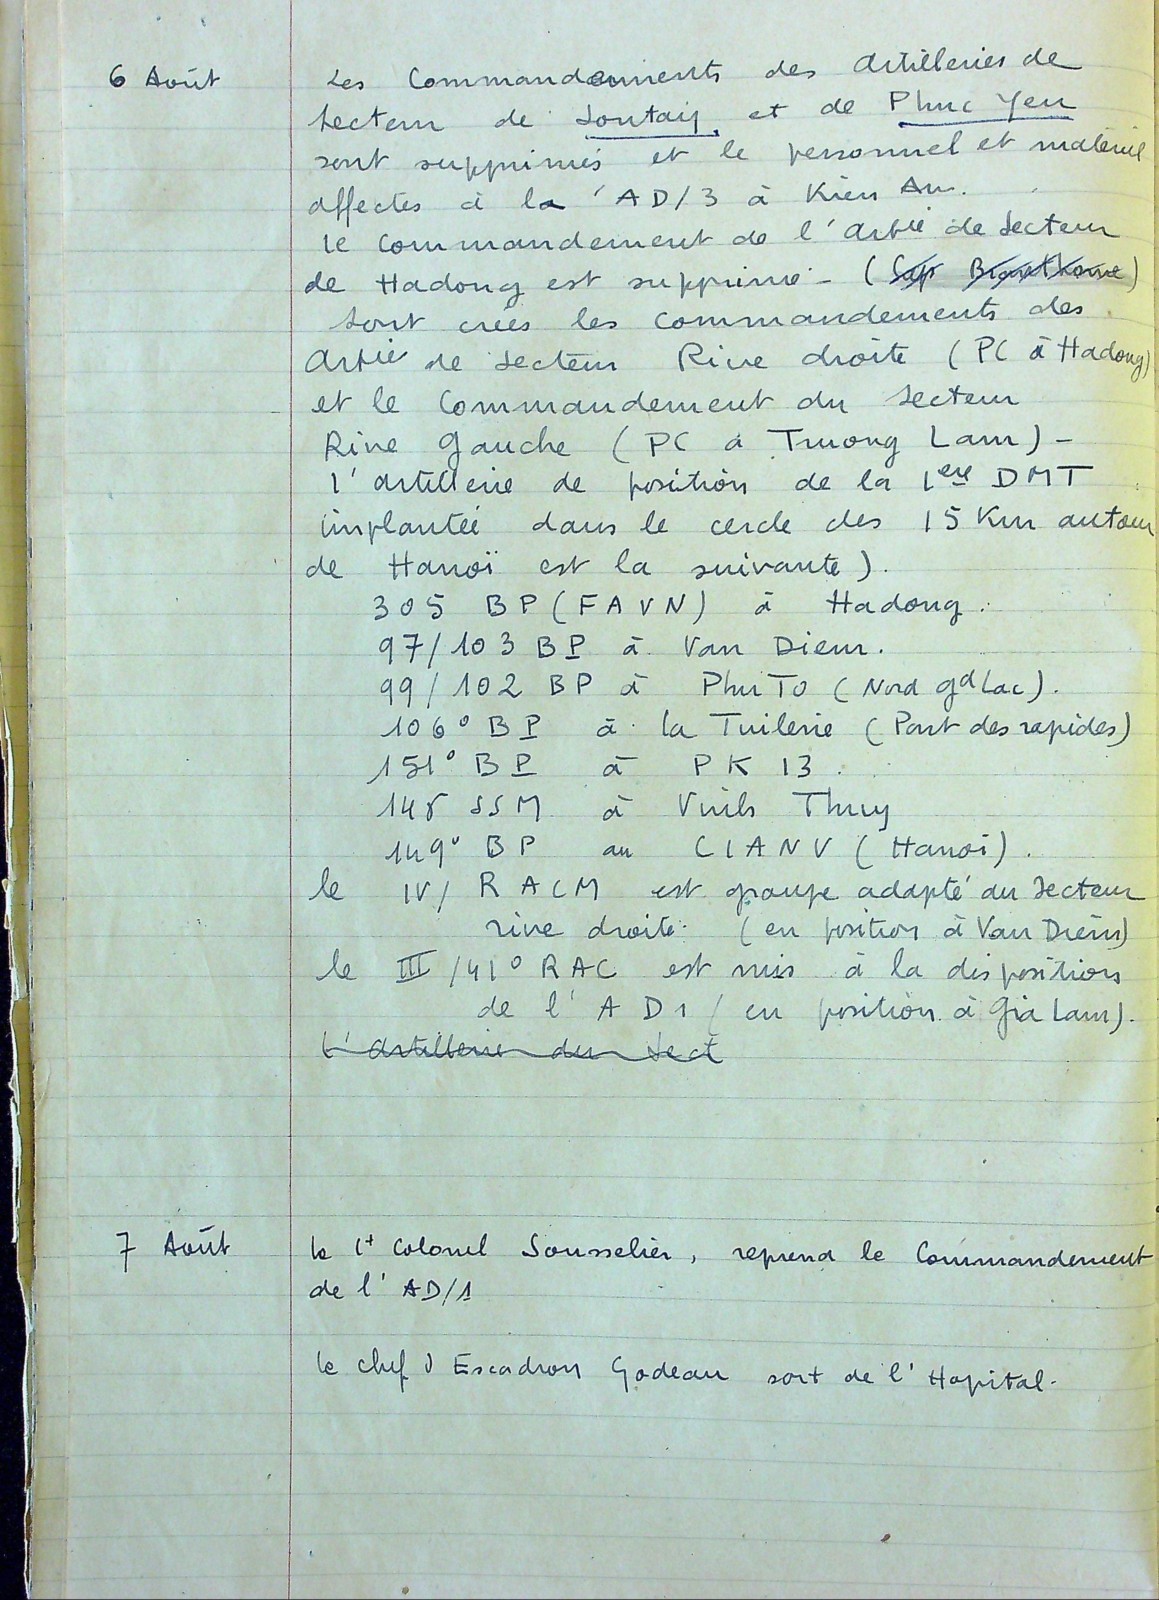 6 Août Les Commandements des artilleries de
secteur de Sontay, et de Phuc Yen
sont supprimés et le personnel et matériel
affectés à la AD/3 à Kien An.
le Commandement de l'artie de Secteur
de Hadong est supprimé - (
Sont crées les commandements des
Artie de Secteur Rive droite (PC à Hadong)
et le Commandement du Secteur
Rive Gauche (PC à Truong Lam) -
l'artillerie de position de la 1ere DMT
implantée dans le cercle des 15 Km autour
de Hanoï est la suivante).
305 BP (FAVN) à Hadong.
97/103 BP à Van Dien.
99/102 BP à Phu To (Nord Gd Lac).
106° BP à la Tuilerie (Pont des rapides)
151° BP à PK 13.
148 SSM à Vinh Thuy
149° BP au CIANV (Hanoi).
le IV/ RACM est groupe adapté du Secteur
rive droite. (en position à Van Dien)
le III/41° RAC est mis à la disposition
de l'AD1 (en position à Gia Lam).
L'artillerie du Sect
7 Août le Lt Colonel Sousselier, reprend le Commandement
de l'AD/1
le chef d Escadron Godeau sort de l'Hopital.